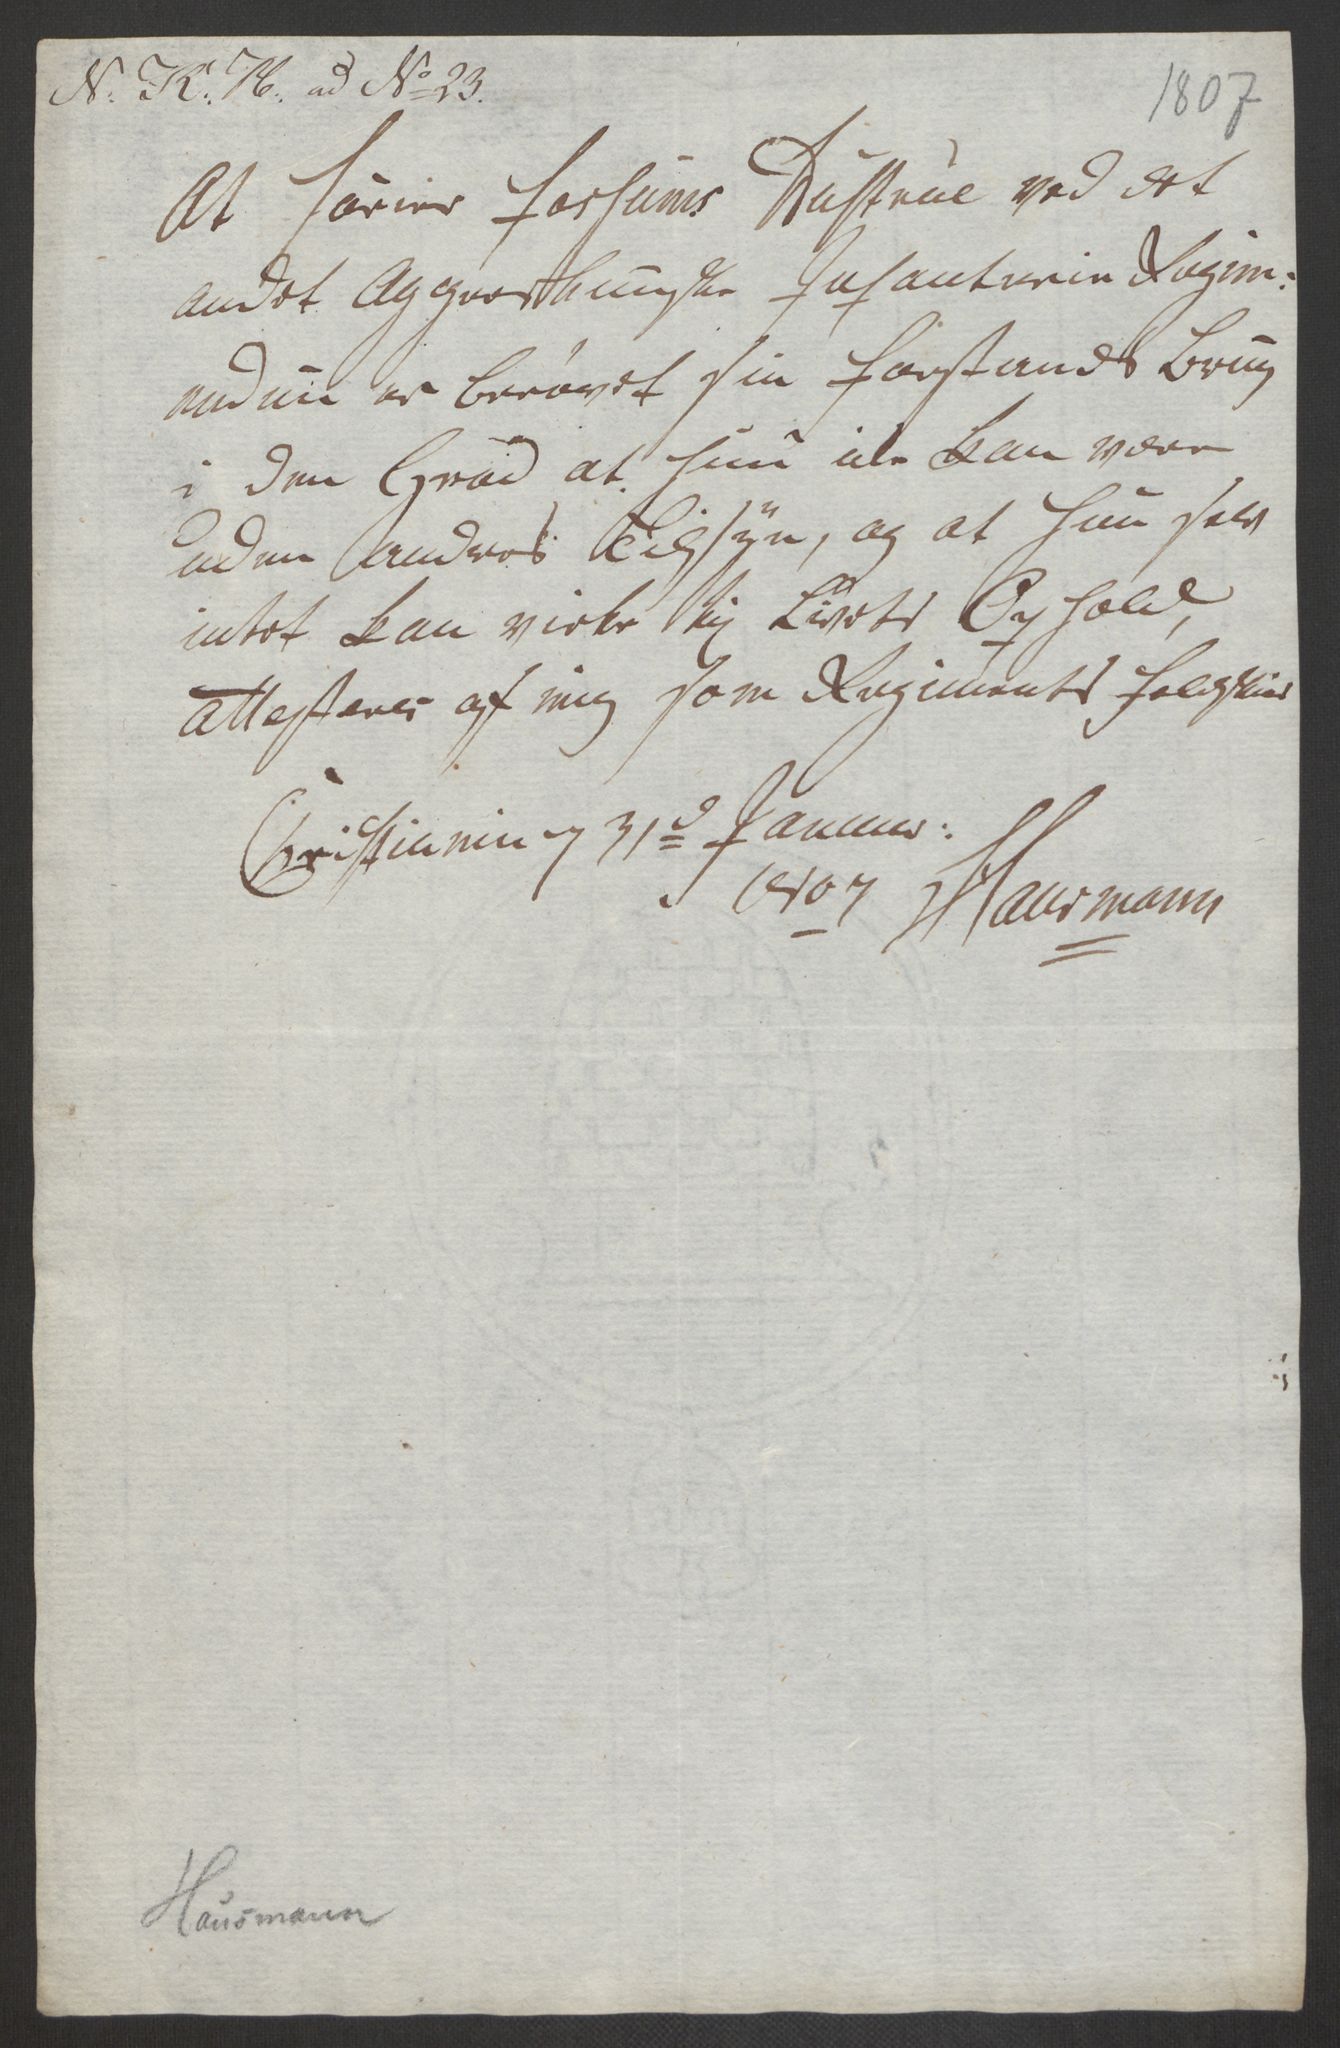 N. K. H. ad No 23.
1807
At Fourier Fossums Hustrue ved det
andet Aggershuusske Infanterie Regim:
endnu er berøvet sin Forstands Brug
i den Grad at hun ike kan være
uden andres Tilsÿn, og at hun selv
intet kan virke til Livets Ophold,
attesteres af mig som Regiments Feldskier
Christiania 31d Januar:
1807 Hausmann
Hausmann